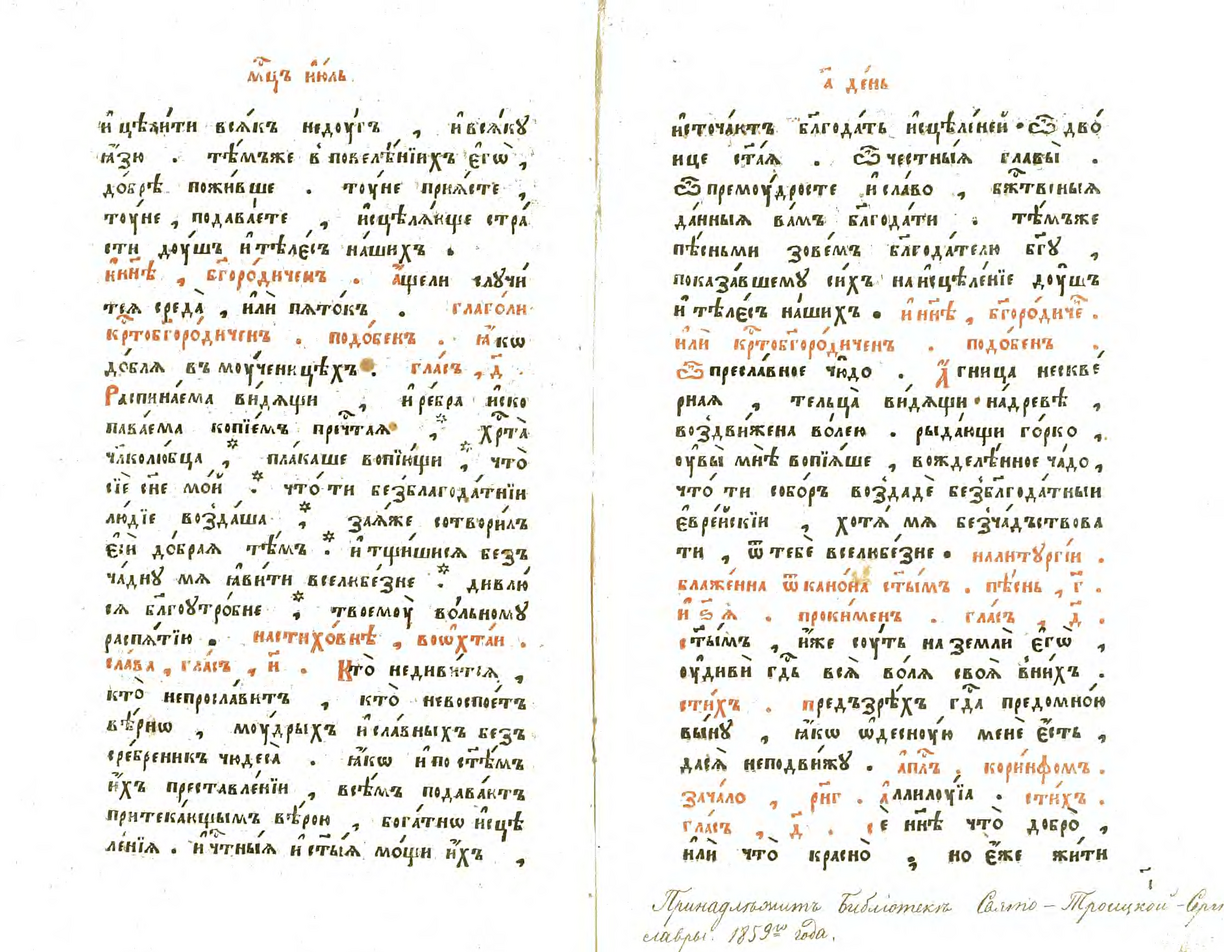 мⷭ҇цъ і҆ю́ль.
и҆ цѣли́ти всѧ́къ недоу́гъ , и҆ всѧ́кꙋ
ꙗ҆́зю . тѣ́мъже в повелѣ́нїихъ є҆гѡ̀ ,
до́брѣ пожи́вше . тоу́не прїѧ́сте ,
тоу́не , подава́ете , и҆сцѣлѧ́юще стра́
сти доу́шъ и҆ тѣле́съ на́шихъ .
и҆ нн҃ѣ , бг҃оро́диченъ . а҆́щели слꙋчи́
тсѧ среда̀ , и҆лѝ пѧто́къ . глаго́ли
крⷭ҇тобг҃оро́диченъ . подо́бенъ . ꙗ҆́кѡ
до́блѧ въ моу́ченицѣхъ . гла́съ , д҃ .
Распина́ема ви́дѧщи , и҆ ре́бра и҆ско
пава́ема копїе́мъ пречⷭ҇таѧ , * Хрⷭ҇та̀
чл҃колю́бца , * пла́каше вопїю́щи , * что̀
сїѐ сн҃е мо́й . * что́ ти безблагода́тнїи
лю́дїе возда́ша , * за ѧ҆́же сотвори́лъ
є҆сѝ до́браѧ тѣ́мъ . * и҆ тщи́шисѧ безъ
ча́днꙋ мѧ ꙗ҆ви́ти вселюбе́зне . * дивлю́
сѧ благоꙋтро́бне , * твоемоу̀ во́льномꙋ
распѧ́тїю . на стихо́внѣ , во ѻ҆хта́и .
сла́ва , гла́съ , и҃ . Кто̀ недиви́тсѧ ,
кто̀ непросла́витъ , кто̀ невоспое́тъ
вѣ́рнѡ , моу́дрыхъ и҆ сла́вныхъ безъ
сре́бреникъ чюдеса̀ . ꙗ҆́кѡ и҆ по ст҃ѣ́мъ
и҆́хъ преставле́нїи , всѣ́мъ подаваю́тъ
притека́ющымъ вѣ́рою , бога́тнѡ и҆сцѣ
ле́нїѧ . и҆ чтⷭ҇ныѧ и҆ ст҃ы́ѧ мо́щи и҆́хъ ,
а҃ де́нь
и҆сточа́ютъ благода́ть и҆сцѣле́ней . Ѽ дво́
ице ст҃а́ѧ . Ѽ че́стныѧ главы̀ .
Ѽ премоу́дросте и҆ сла́во , бжⷭ҇твеныѧ
да́нныѧ ва́мъ благода́ти . тѣ́мъже
пѣ́сньми зове́мъ благода́телю бг҃ꙋ ,
показа́вшемꙋ си́хъ на и҆сцѣле́нїе доу́шъ
и҆ тѣле́съ на́шихъ . и҆ нн҃ѣ , бг҃оро́диче .
и҆лѝ крⷭ҇тобг҃оро́диченъ . подо́бенъ .
Ѽ пресла́вное чю́до . А҆́гница нескве́
рнаѧ , тельца̀ ви́дѧщи на дре́вѣ ,
воздви́жена во́лею . рыда́ющи го́рко ,
оу҆вы̀ мнѣ̀ вопїѧ́ше , вожделѣ́нное ча́до ,
что́ ти собо́ръ воздадѐ безблагода́тныи
є҆вре́йскїи , хотѧ́ мѧ безча́дъствова
ти , ѿ тебѐ вселюбе́зне . на литꙋргі́и .
блаже́нна ѿ кано́на ст҃ы́мъ . пѣ́снь , г҃ .
и҆ ѕ҃ ѧ . проки́менъ . гла́съ , д҃ .
ст҃ы́мъ , и҆́же соу́ть на землѝ є҆гѡ̀ ,
оу҆дивѝ гдⷭ҇ь всѧ̀ во́лѧ своѧ̀ в ни́хъ .
сти́хъ . предъзрѣ́хъ гдⷭ҇а предомно́ю
вы́нꙋ , ꙗ҆́кѡ ѡ҆десноу́ю менѐ є҆́сть ,
да сѧ̀ неподви́жꙋ . а҆пⷭ҇лъ . кори́нфомъ .
зача́ло , рн҃г . Аллилоу́їа . сти́хъ .
гла́съ , д҃ . се нн҃ѣ что̀ добро̀ ,
и҆лѝ что̀ красно̀ , но є҆́же жи́ти
Принадлежитъ Библіотекѣ Свято-Троицкой-Серг
лавры. 1859го года.